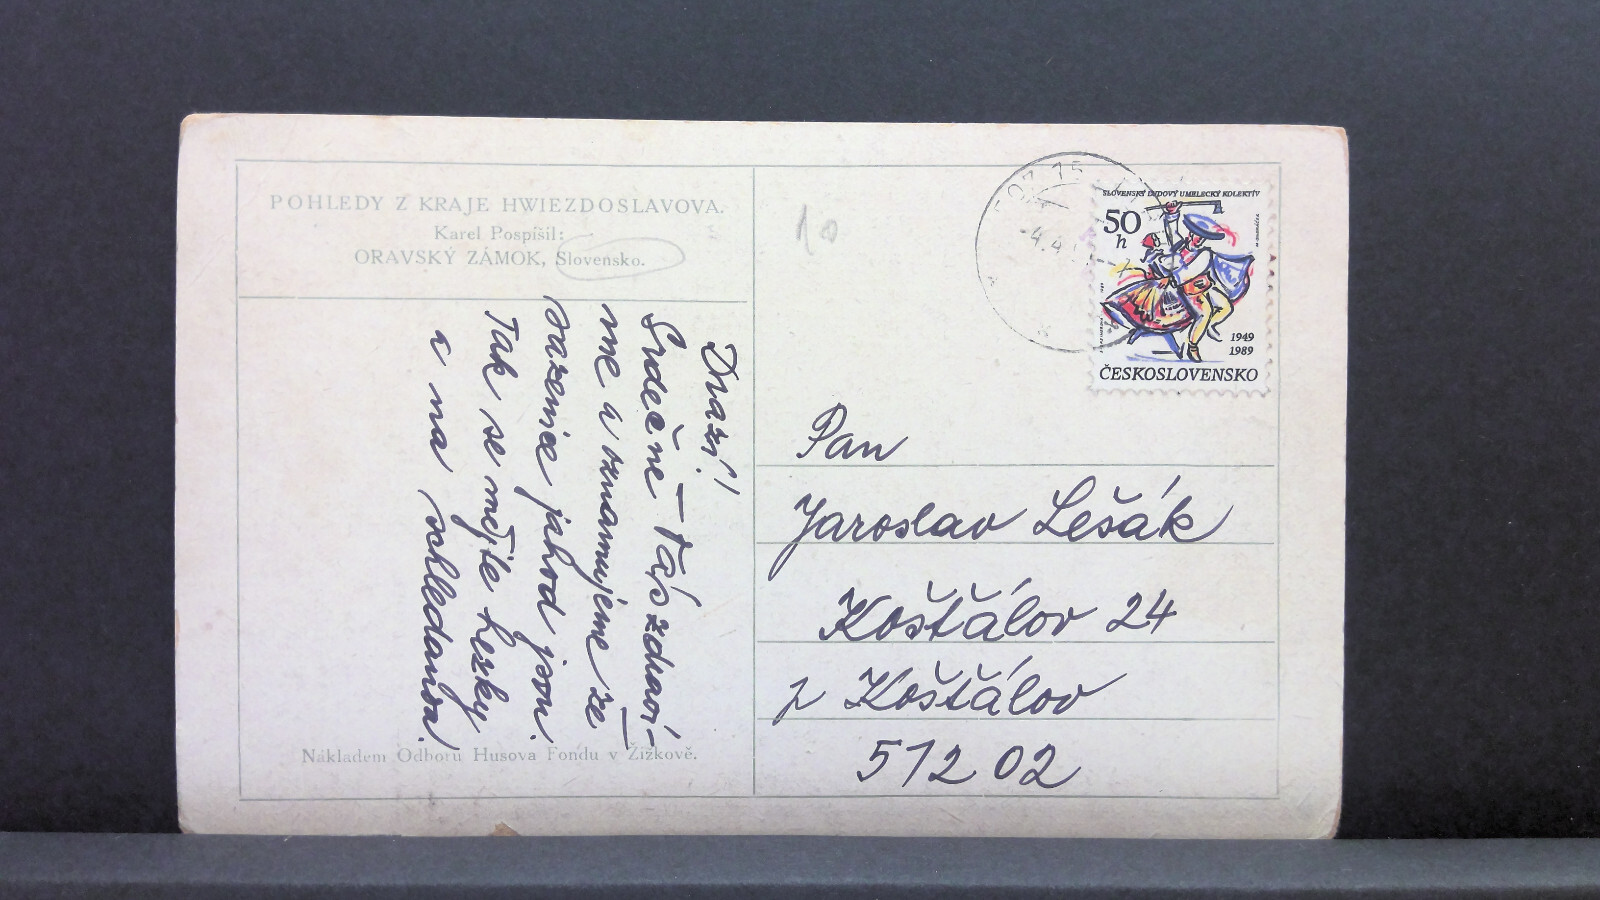 POHLEDY Z KRAJE HWIEZDOSLAVOVA.
Karel Pospíšil:
ORAVSKÝ ZÁMOK, Slovensko.
Drazí!
Srdečně Vás zdraví-
me a oznamujeme že
sazenice jahod jsou.
Tak se mějte hezky
a na schledanou.
Nákladem Odboru Husova Fondu v Žižkově.
10
SLOVENSKÝ ĽUDOVÝ UMELECKÝ KOLEKTÍV
50
h
1949
1989
ČESKOSLOVENSKO
Pan
Jaroslav Lešák
Košťálov 24
p Košťálov
512 02